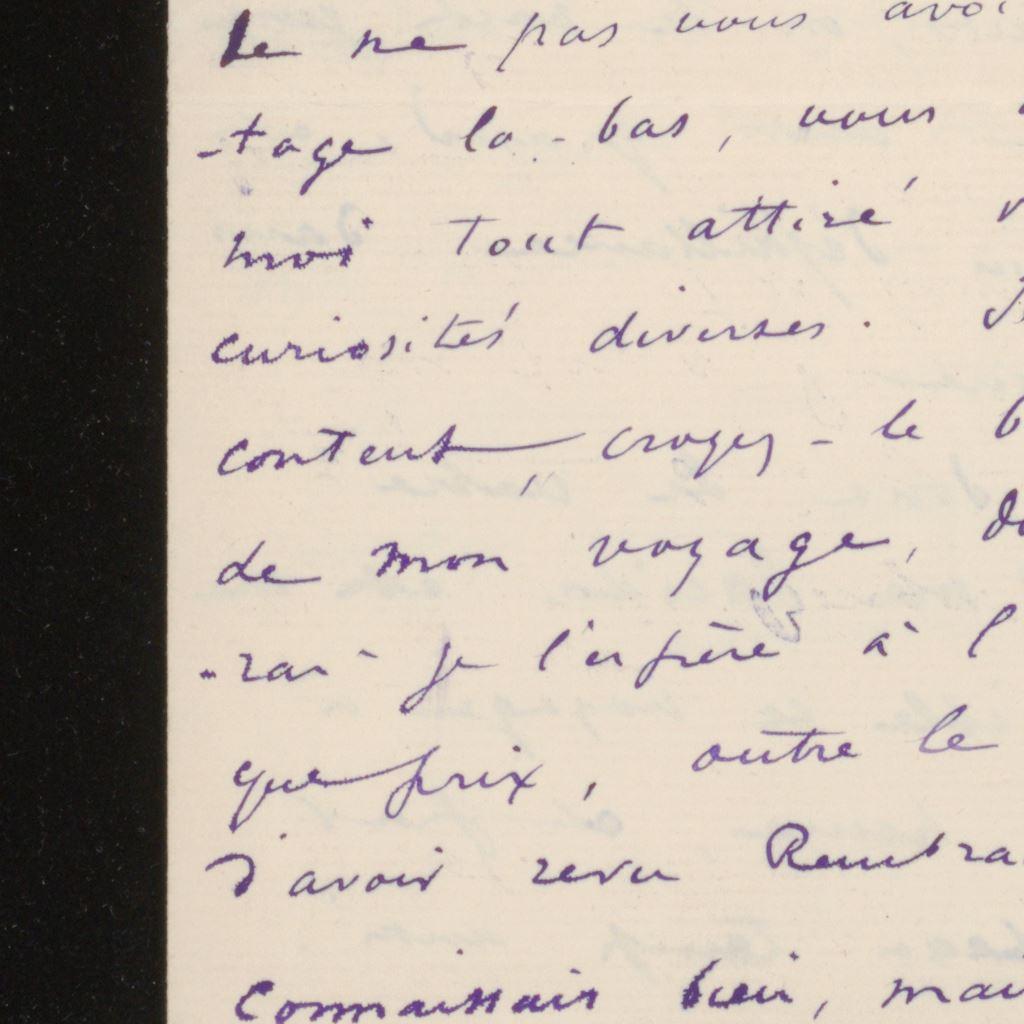 de ne pas vous avoi
-tage la-bas, vous
moi tout attiré
curiosités diverses.
content, croyez-le b
de mon voyage,
-rai je l'espère à l
que prix, outre le
d'avoir revu Rembra
connaissais bien, mai